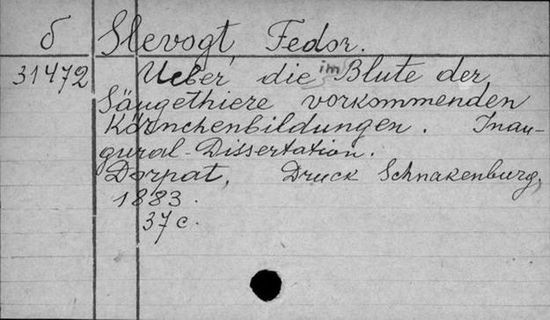 б Slevogt, Fedor.
31472 Ueber die im Blute der
Säugethiere vorkommenden
Körnchenbildungen. Inau-
gural-Dissertation.
Dorpat, Druck Schnakenburg,
1883.
37 c.